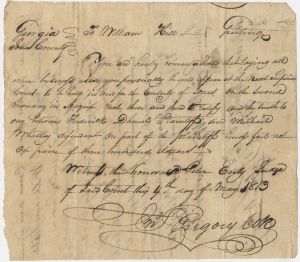 Georgia To William Hill Greeting
County You are hereby commanded that laying all
other business aside you personally be and appear at the next Superior
Court to be held in and for the County of on the second
Monday in August next then and there to testify and the truth to
say between Frederick Daniel Plaintiff and Michael
Whatley defendant on part of the Plaintiff herein fail not
on pain of three hundred dollars
Witness the honorable Peter Early Judge
of said Court this 4th day of May 1813
Gregory Clk